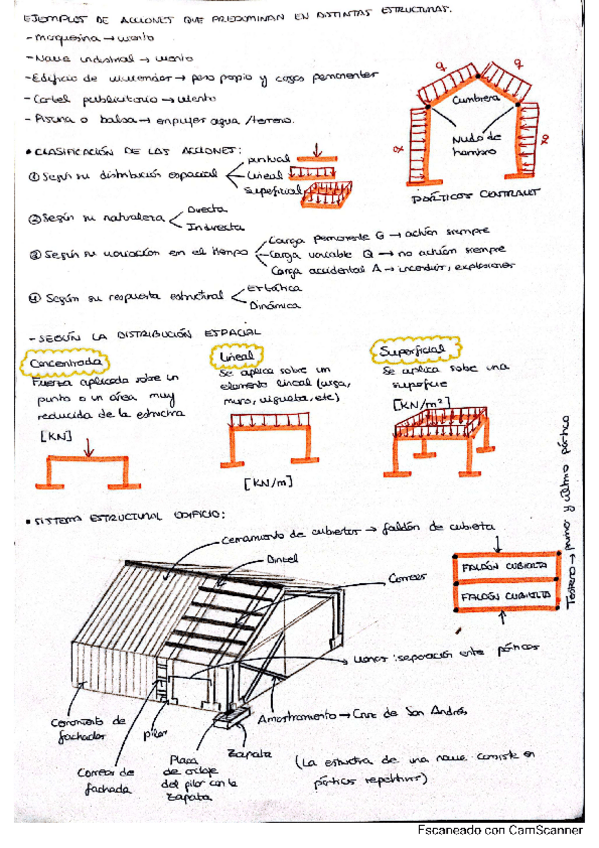 EJEMPLOS DE ACCIONES QUE PREDOMINAN EN DISTINTAS ESTRUCTURAS.
- Marquesina → viento
- Nave industrial → viento
- Edificio de viviendas → peso propio y cargas permanentes
- Cartel publicitario → viento
- Piscina o balsa → empujes agua / terreno.
q q
Cumbrera
Nudo de hombro
q q
PÓRTICOS CENTRALES
• CLASIFICACIÓN DE LAS ACCIONES:
① Según su distribución espacial
puntual
Lineal
Superficial
② Según su naturaleza
Directa
Indirecta
③ Según su variación en el tiempo
Carga permanente G → actúan siempre
Carga variable Q → no actúan siempre
Carga accidental A → incendios, explosiones
④ Según su respuesta estructural
Estática
Dinámica
- SEGÚN LA DISTRIBUCIÓN ESPACIAL
Concentrada
Fuerza aplicada sobre un
punto o un área muy
reducida de la estructura
[KN]
Lineal
Se aplica sobre un
elemento lineal (viga,
muro, vigueta, etc)
[KN/m]
Superficial
Se aplica sobre una
superficie
[KN/m²]
• SISTEMA ESTRUCTURAL EDIFICIO:
Cerramiento de cubiertas → faldón de cubierta
Dintel
Correas
Vanos: separación entre pórticos
Amostramiento → Cruz de San Andrés
Zapata
Placa
de anclaje
del pilar con la
Zapata
Pilar
Correas de
fachada
Cerramiento de
fachadas
(La estructura de una nave consiste en
pórticos repetitivos)
FALDÓN CUBIERTA
FALDÓN CUBIERTA
Testero → primer y último pórtico
Escaneado con CamScanner